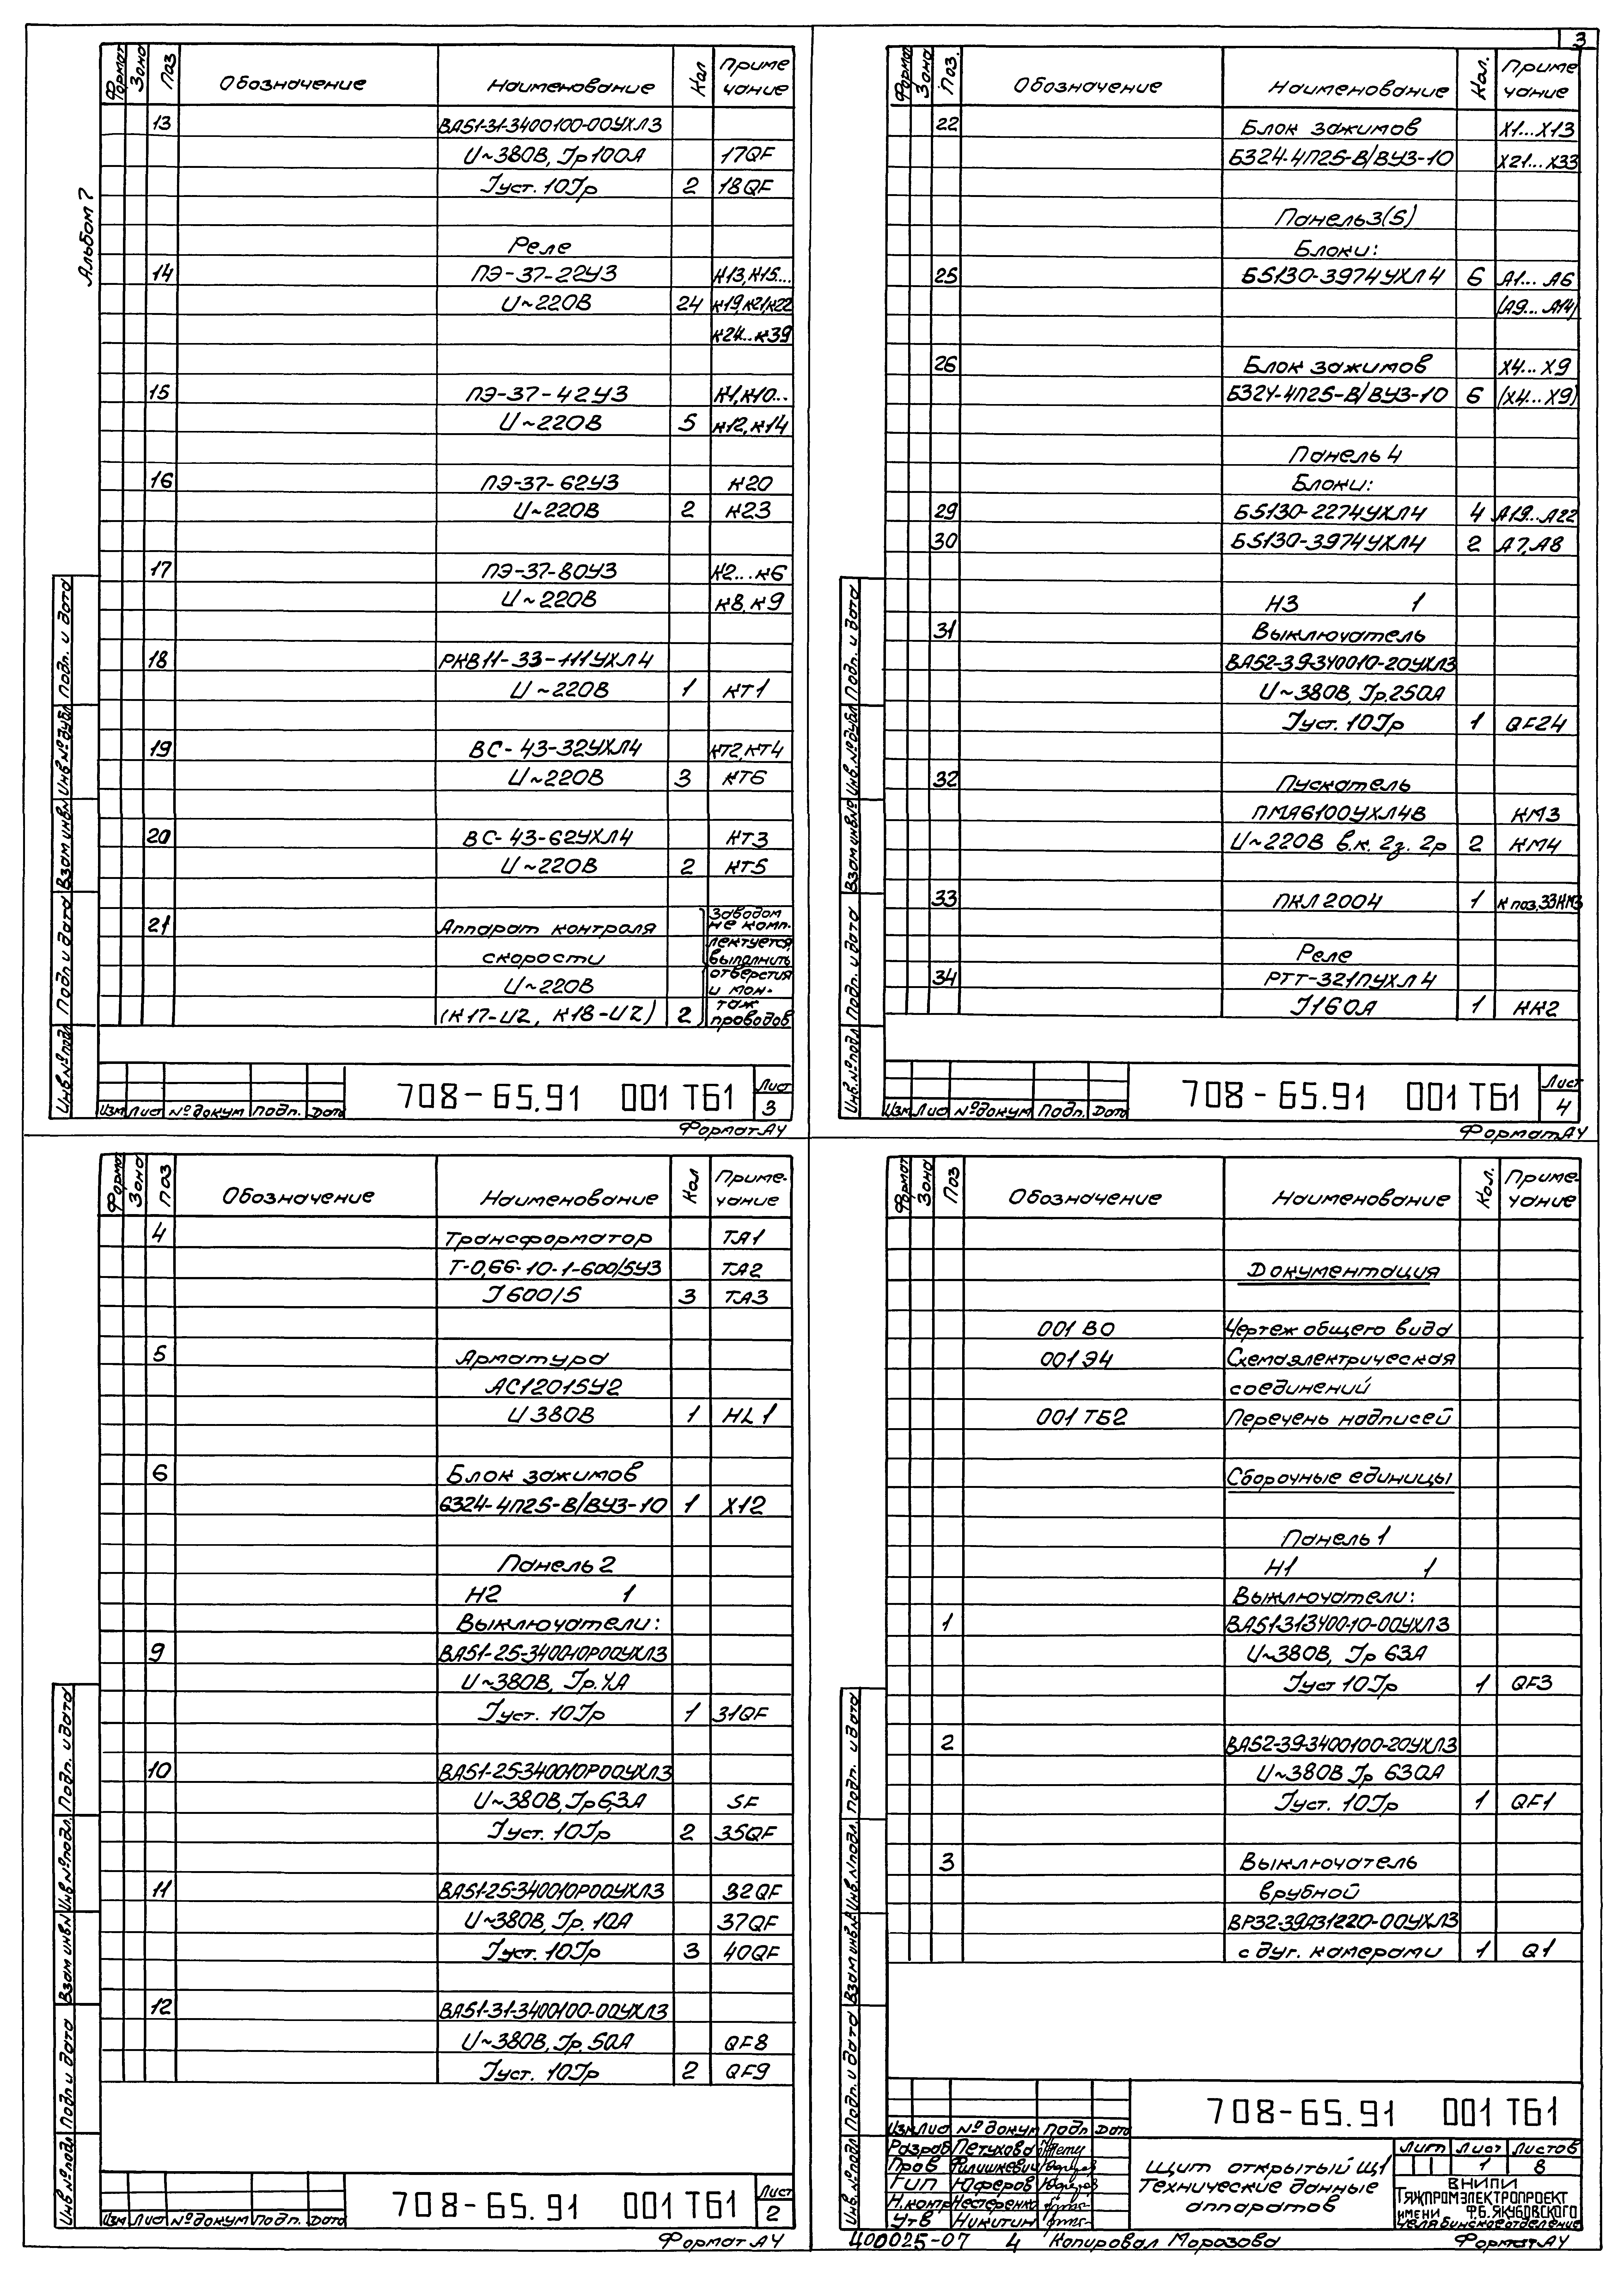 3
Альбом 7
Формат Зона Поз Обозначение Наименование Кол Приме чание
13 ВА51-31-3400100-00УХЛ3
U~380В, Iр 100А 17QF
Iуст. 10Iр 2 18QF
Реле
14 ПЭ-37-22У3 К13,К15...
U~220В 24 К19,К21,К22
К24...К39
15 ПЭ-37-42У3 К1,К10...
U~220В 5 К12,К14
16 ПЭ-37-62У3 К20
U~220В 2 К23
17 ПЭ-37-80У3 К2...К6
U~220В К8,К9
18 РКВ11-33-111УХЛ4
U~220В 1 КТ1
19 ВС-43-32УХЛ4 КТ2,КТ4
U~220В 3 КТ6
20 ВС-43-62УХЛ4 КТ3
U~220В 2 КТ5
21 Аппарат контроля
скорости
U~220В
(К17-U2, К18-U2) 2
Заводом
не комп-
лектуется,
выполнить
отверстия
и мон-
таж
проводов
Инв.№подл Подп и дата Взам инв№ Инв№дубл Подп. и дата
Изм Лист №докум Подп. Дата
708-65.91 001 ТБ1 Лист 3
Формат А4
Формат Зона Поз. Обозначение Наименование Кол. Приме чание
22 Блок зажимов Х1...Х13
Б324-4П25-В/ВУ3-10 Х21...Х33
Панель3(5)
Блоки:
25 Б5130-3974УХЛ4 6 А1...А6
(А9...А14)
26 Блок зажимов Х4...Х9
Б324-4П25-В/ВУ3-10 6 (Х4...Х9)
Панель 4
Блоки:
29 Б5130-2274УХЛ4 4 А19...А22
30 Б5130-3974УХЛ4 2 А7,А8
Н3 1
31 Выключатель
ВА52-39-340010-20УХЛ3
U~380В, Iр.250А
Iуст. 10Iр 1 QF24
32 Пускатель
ПМА6100УХЛ4В КМ3
U~220В в.к. 2з. 2р 2 КМ4
33 ПКЛ2004 1 К поз.33КМ3
Реле
34 РТТ-321ПУХЛ4
I160А 1 КК2
Инв.№подл Подп. и дата Взам инв№ Инв.№дубл Подп. и дата
Изм Лист №докум Подп. Дата
708-65.91 001 ТБ1 Лист 4
Формат А4
Формат Зона Поз Обозначение Наименование Кол Приме- чание
4 Трансформатор ТА1
Т-0,66-10-1-600/5У3 ТА2
I 600/5 3 ТА3
5 Арматура
АС12015У2
U 380В 1 HL1
6 Блок зажимов
Б324-4П25-В/ВУ3-10 1 Х12
Панель 2
Н2 1
Выключатели:
9 ВА51-25-340010Р00УХЛ3
U~380В, Iр.4А
Iуст. 10Iр 1 31QF
10 ВА51-25-340010Р00УХЛ3
U~380В, Iр6,3А SF
Iуст. 10Iр 2 35QF
11 ВА51-25-340010Р00УХЛ3 32QF
U~380В, Iр. 10А 37QF
Iуст. 10Iр 3 40QF
12 ВА51-31-3400100-00УХЛ3
U~380В, Iр. 50А QF8
Iуст. 10Iр 2 QF9
Инв.№подл Подп и дата Взам инв№ Инв №подл. Подп. и дата
Изм Лист №докум Подп. Дата
708-65.91 001 ТБ1 Лист 2
Формат А4
Формат Зона Поз Обозначение Наименование Кол. Приме- чание
Документация
001 ВО Чертеж общего вида
001 Э4 Схема электрическая
соединений
001 ТБ2 Перечень надписей
Сборочные единицы
Панель 1
Н1 1
Выключатели:
1 ВА51-313400-10-00УХЛ3
U~380В, Iр 63А
Iуст 10Iр 1 QF3
2 ВА52-39-3400100-20УХЛ3
U~380В Iр 630А
Iуст. 10Iр 1 QF1
3 Выключатель
врубной
ВР32-39А31220-00УХЛ3
с дуг. камерами 1 Q1
Инв.№подл Подп. и дата Взам инв.№ Инв.№подл. Подп. и дата
Изм Лист №докум Подп Дата
708-65.91 001 ТБ1
Разраб Петухова
Пров Филишкевич
ГИП Юферов
Н.контр Нестеренко
Утв Никитин
Щит открытый Щ1
Технические данные
аппаратов
Лит Лист Листов
1 8
ВНИПИ
ТЯЖПРОМЭЛЕКТРОПРОЕКТ
имени Ф.Б.ЯКУБОВСКОГО
Челябинское отделение
400025-07 4 Копировал Морозова Формат А4